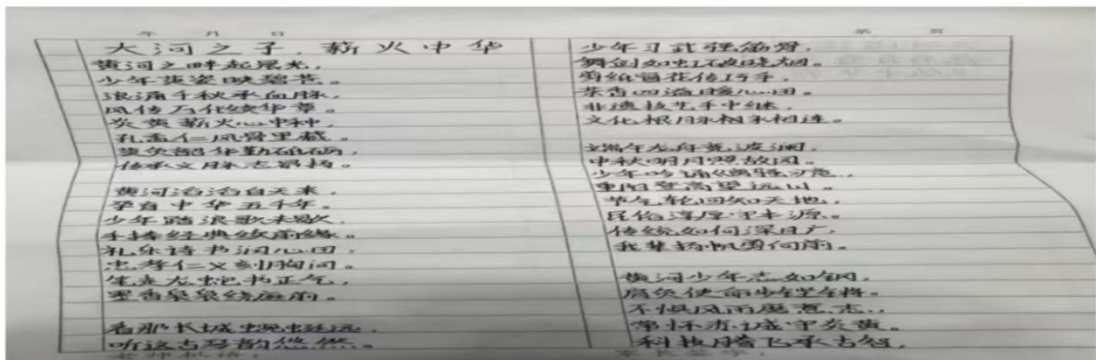 年 月 日
第 页
大河之子,薪火中华
黄河之畔起晨光,
少年英姿映碧苍。
浪涌千秋承血脉,
风传万代续华章。
炎黄薪火心中种,
孔孟仁风骨里藏。
莫负韶华勤砥砺,
传承文脉志昂扬。
黄河滔滔自天来,
孕育中华五千年。
少年踏浪歌未歇,
手捧经典续前缘。
礼乐诗书润心田,
忠孝仁义刻胸间。
笔走龙蛇书正气,
墨香袅袅绕庭前。
看那长城蜿蜒远,
听这古琴韵悠然。
少年习武强筋骨,
舞剑如虹破晓烟。
剪纸窗花传巧手,
茶香四溢暖心田。
非遗技艺手中继,
文化根脉相承相连。
端午龙舟竞波澜,
中秋明月照故园。
少年吟诵
重阳登高望远山。
节气轮回知天地,
民俗淳厚守本源。
传统如河深且广,
我辈扬帆勇向前。
黄河少年志如钢,
肩负使命步铿锵。
不惧风雨磨意志,
常怀赤诚守炎黄。
科技腾飞承古韵,